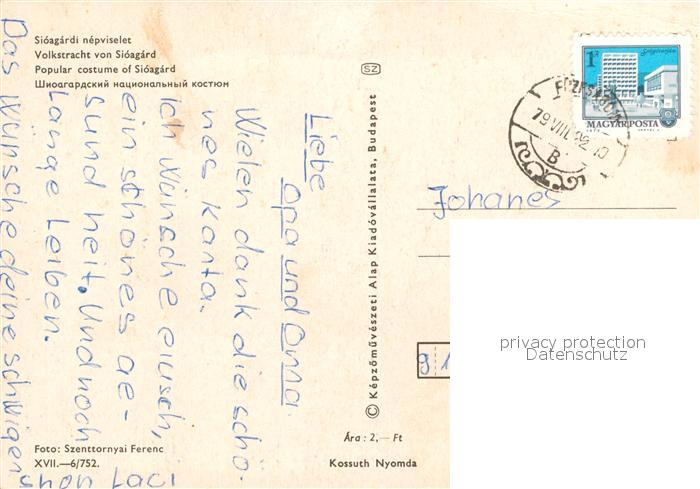 Sióagárdi népviselet
Volkstracht von Sióagárd
Popular costume of Sióagárd
Шиоагардский национальный костюм
SZ
Liebe
Opa und Oma.
Wielen dank die schö-
nes karta.
Ich wünsche euch,
ein schönes ge-
sund heit. Und noch
Lange Leiben.
Das wünsche deine
© Képzőművészeti Alap Kiadóvállalata, Budapest
1 Ft
MAGYAR POSTA
79 VIII. 22. 10
B
Johanes
91
privacy protection
Datenschutz
Foto: Szenttornyai Ferenc
XVII.—6/752.
Ára: 2,— Ft
Kossuth Nyomda